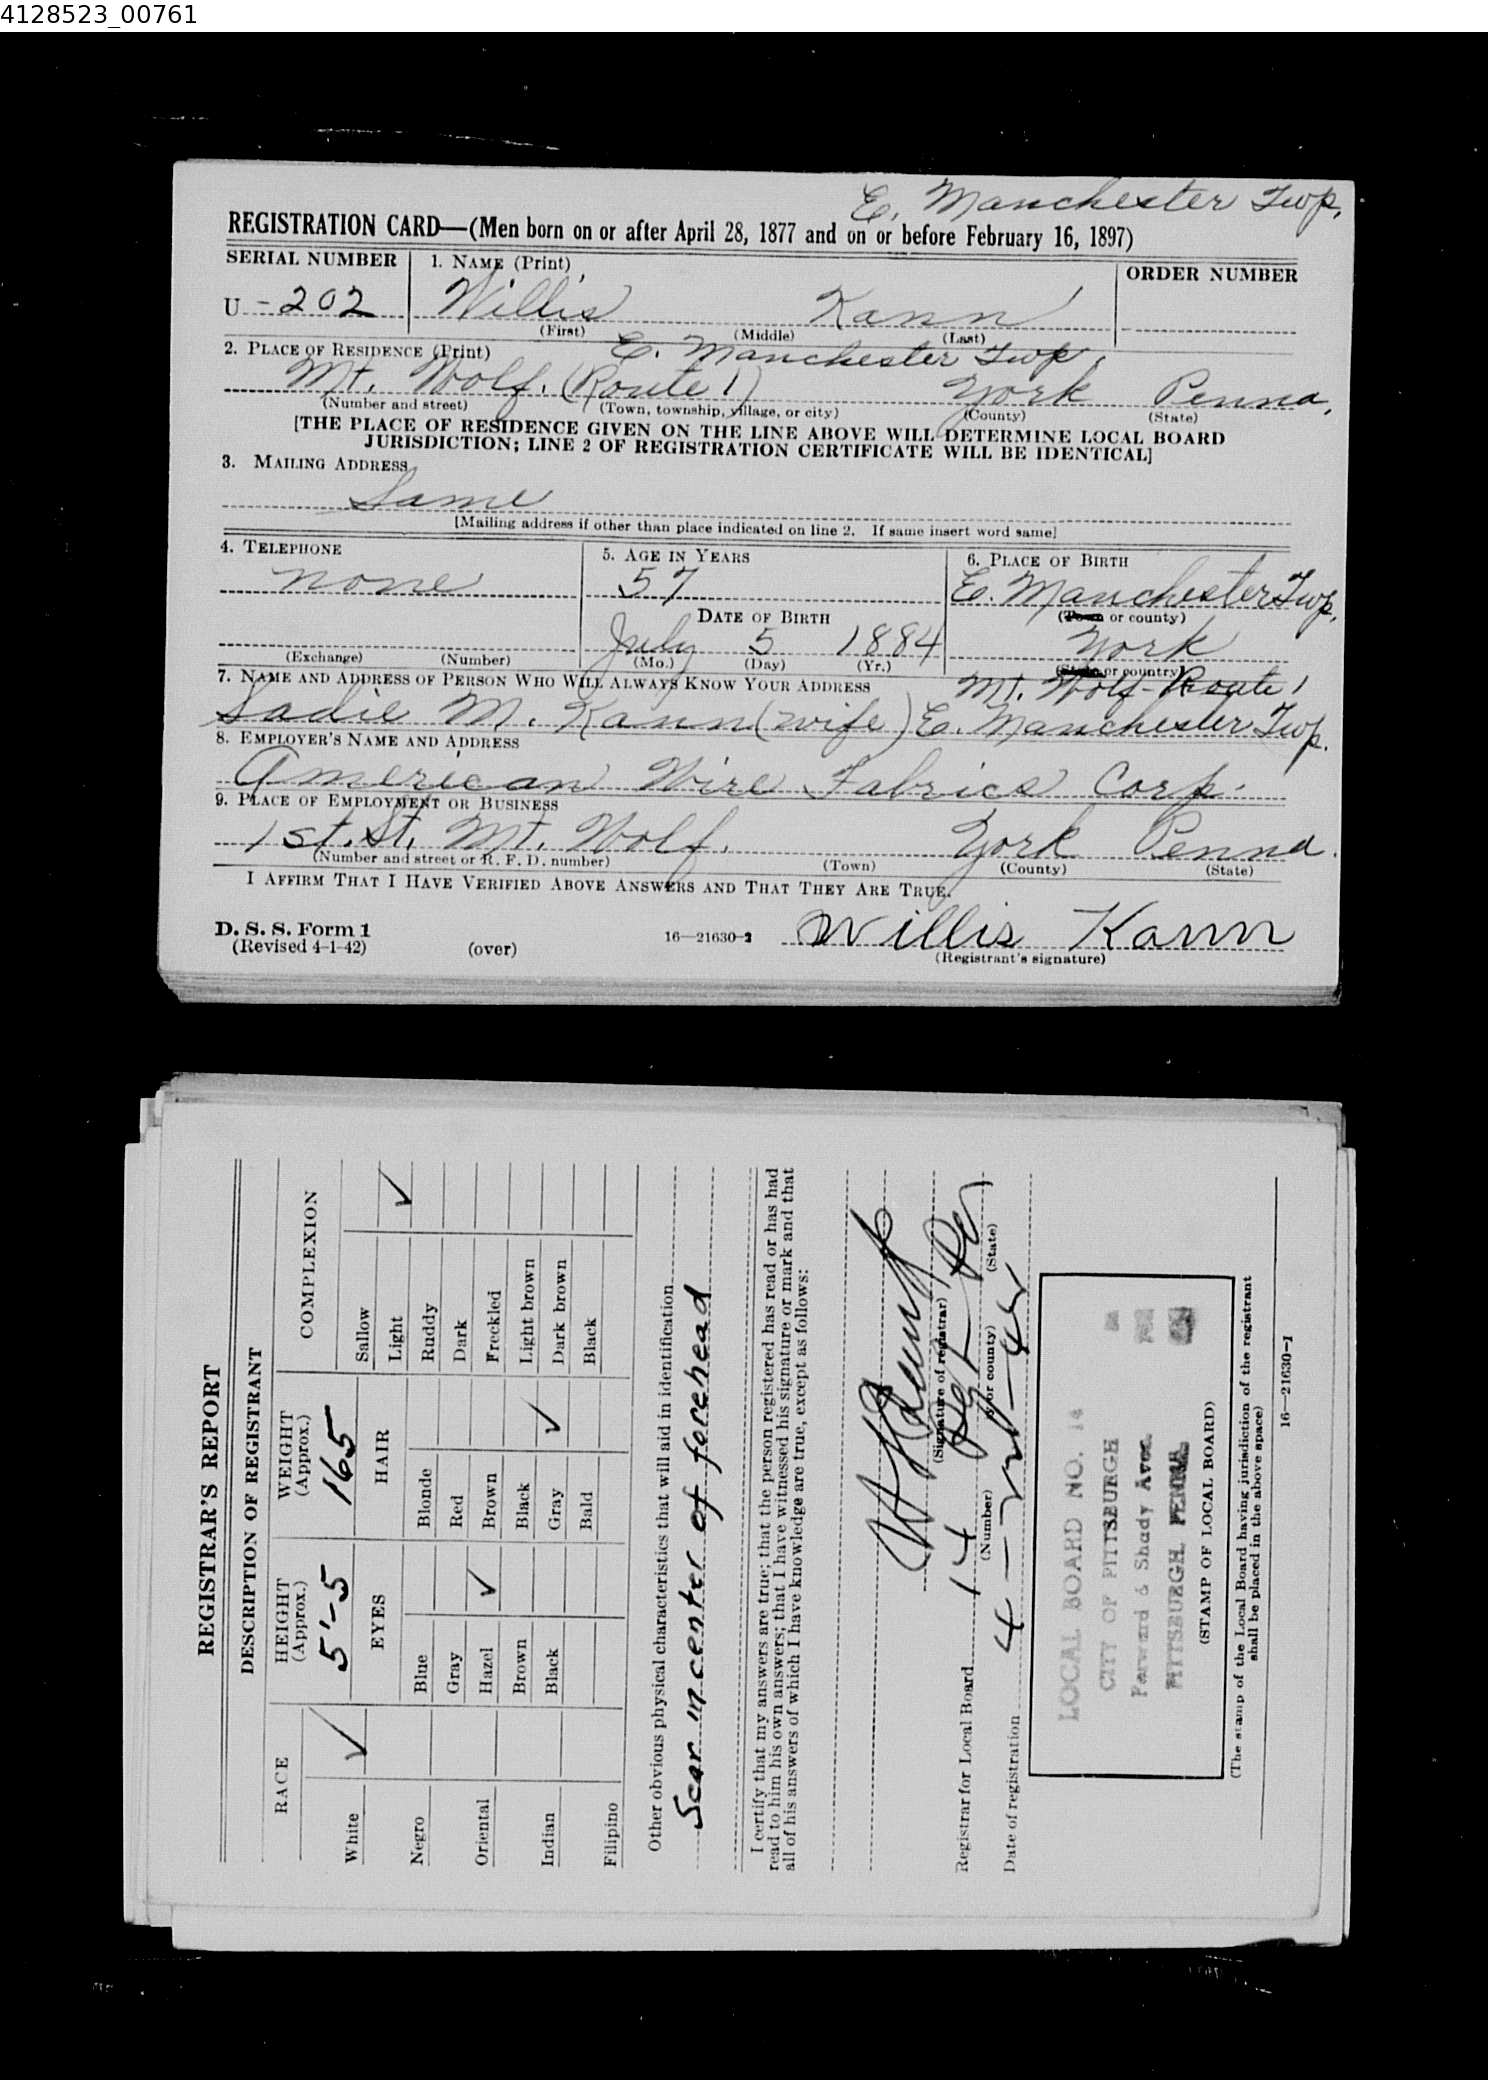 4128523_00761
E. Manchester Twp.
REGISTRATION CARD—(Men born on or after April 28, 1877 and on or before February 16, 1897)
SERIAL NUMBER 1. NAME (Print) ORDER NUMBER
U -202 Willis Kann
(First) (Middle) (Last)
2. PLACE OF RESIDENCE (Print) E. Manchester Twp.
Mt. Wolf. (Route 1) York Penna.
(Number and street) (Town, township, village, or city) (County) (State)
[THE PLACE OF RESIDENCE GIVEN ON THE LINE ABOVE WILL DETERMINE LOCAL BOARD
JURISDICTION; LINE 2 OF REGISTRATION CERTIFICATE WILL BE IDENTICAL]
3. MAILING ADDRESS
Same
[Mailing address if other than place indicated on line 2. If same insert word same]
4. TELEPHONE 5. AGE IN YEARS 6. PLACE OF BIRTH
none 57 E. Manchester Twp.
DATE OF BIRTH (Town or county)
July 5 1884 York
(Exchange) (Number) (Mo.) (Day) (Yr.) (State or country)
7. NAME AND ADDRESS OF PERSON WHO WILL ALWAYS KNOW YOUR ADDRESS Mt. Wolf-Route 1
Sadie M. Kann (wife) E. Manchester Twp.
8. EMPLOYER'S NAME AND ADDRESS
American Wire Fabrics Corp.
9. PLACE OF EMPLOYMENT OR BUSINESS
1st. St. Mt. Wolf. York Penna.
(Number and street or R. F. D. number) (Town) (County) (State)
I AFFIRM THAT I HAVE VERIFIED ABOVE ANSWERS AND THAT THEY ARE TRUE.
D. S. S. Form 1
(Revised 4-1-42) (over) 16—21630-2 Willis Kann
(Registrant's signature)
REGISTRAR'S REPORT
DESCRIPTION OF REGISTRANT
RACE HEIGHT (Approx.) WEIGHT (Approx.) COMPLEXION
5'-5 165
White ✓ EYES HAIR Sallow
Light ✓
Negro Blue Blonde Ruddy
Gray Red Dark
Oriental Hazel ✓ Brown Freckled
Brown Black Light brown
Indian Black Gray ✓ Dark brown
Bald Black
Filipino
Other obvious physical characteristics that will aid in identification
Scar in center of forehead
I certify that my answers are true; that the person registered has read or has had
read to him his own answers; that I have witnessed his signature or mark and that
all of his answers of which I have knowledge are true, except as follows:
(Signature of registrar)
Registrar for Local Board 14
(Number) (City or county) (State)
Date of registration 4-
LOCAL BOARD NO. 14
CITY OF PITTSBURGH
Forward & Shady Aves.
PITTSBURGH, PENNA.
(STAMP OF LOCAL BOARD)
(The stamp of the Local Board having jurisdiction of the registrant
shall be placed in the above space)
16—21630-1